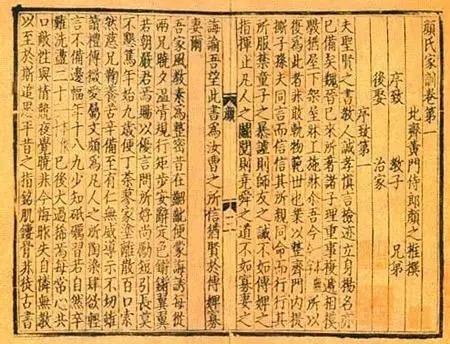 顏氏家訓卷第一
北齊黃門侍郎顏之推撰
序致 教子 兄弟
後娶 治家
序致第一
夫聖賢之書教人誠孝慎言檢迹立身揚名亦
已備矣魏晉已來所著諸子理重事複遞相摸
斆猶屋下架屋牀上施牀尒吾今所以
復為此者非敢軌物範世也業以整齊門內提
撕子孫夫同言而信信其所親同命而行行其
所服禁童子之暴謔則師友之誡不如傅婢之
指揮止凡人之鬬鬩則堯舜之道不如寡妻之
顏一
二
誨諭吾望此書為汝曹之所信猶賢於傅婢寡
妻爾
吾家風教素為整密昔在齠齔便蒙誨誘每從
兩兄曉夕溫凊規行矩步安辭定色鏘鏘翼翼
若朝嚴君焉賜以優言問所好尚勵短引長莫
不懇篤年始九歲便丁荼蓼家塗離散百口索
然慈兄鞠養苦辛備至有仁無威導示不切雖
讀禮傳微愛屬文頗為凡人之所陶染肆欲輕
言不備邊幅年十八九少知砥礪習若自然卒
難洗盪二十已後大過稀焉每常心共
口敵性與情競夜覺曉非今悔昨失自憐無教
以至於斯追思平昔之指銘肌鏤骨非徒古書